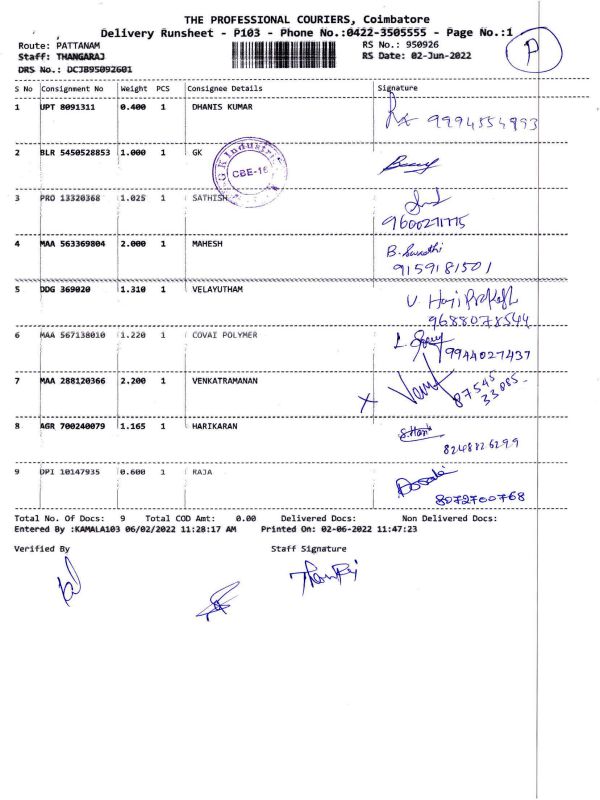 THE PROFESSIONAL COURIERS, Coimbatore
Delivery Runsheet - P103 - Phone No.:0422-3505555 - Page No.:1
Route: PATTANAM RS No.: 950926
Staff: THANGARAJ RS Date: 02-Jun-2022
DRS No.: DCJB95092601
P
S No Consignment No Weight PCS Consignee Details Signature
1 UPT 8091311 0.400 1 DHANIS KUMAR
9994554893
2 BLR 5450528853 1.000 1 GK
G K Industries CBE-16
3 PRO 13320368 1.025 1 SATHISH
9600271775
4 MAA 563369804 2.000 1 MAHESH
9159181501
5 DDG 369020 1.310 1 VELAYUTHAM
V. Hari Prakash
9688078544
6 MAA 567138010 1.220 1 COVAI POLYMER
9944027437
7 MAA 288120366 2.200 1 VENKATRAMANAN
X 87545
33885
8 AGR 700240079 1.165 1 HARIKARAN
S.Hari
8248826299
9 DPI 10147935 0.600 1 RAJA
8072700768
Total No. Of Docs: 9 Total COD Amt: 0.00 Delivered Docs: Non Delivered Docs:
Entered By :KAMALA103 06/02/2022 11:28:17 AM Printed On: 02-06-2022 11:47:23
Verified By Staff Signature